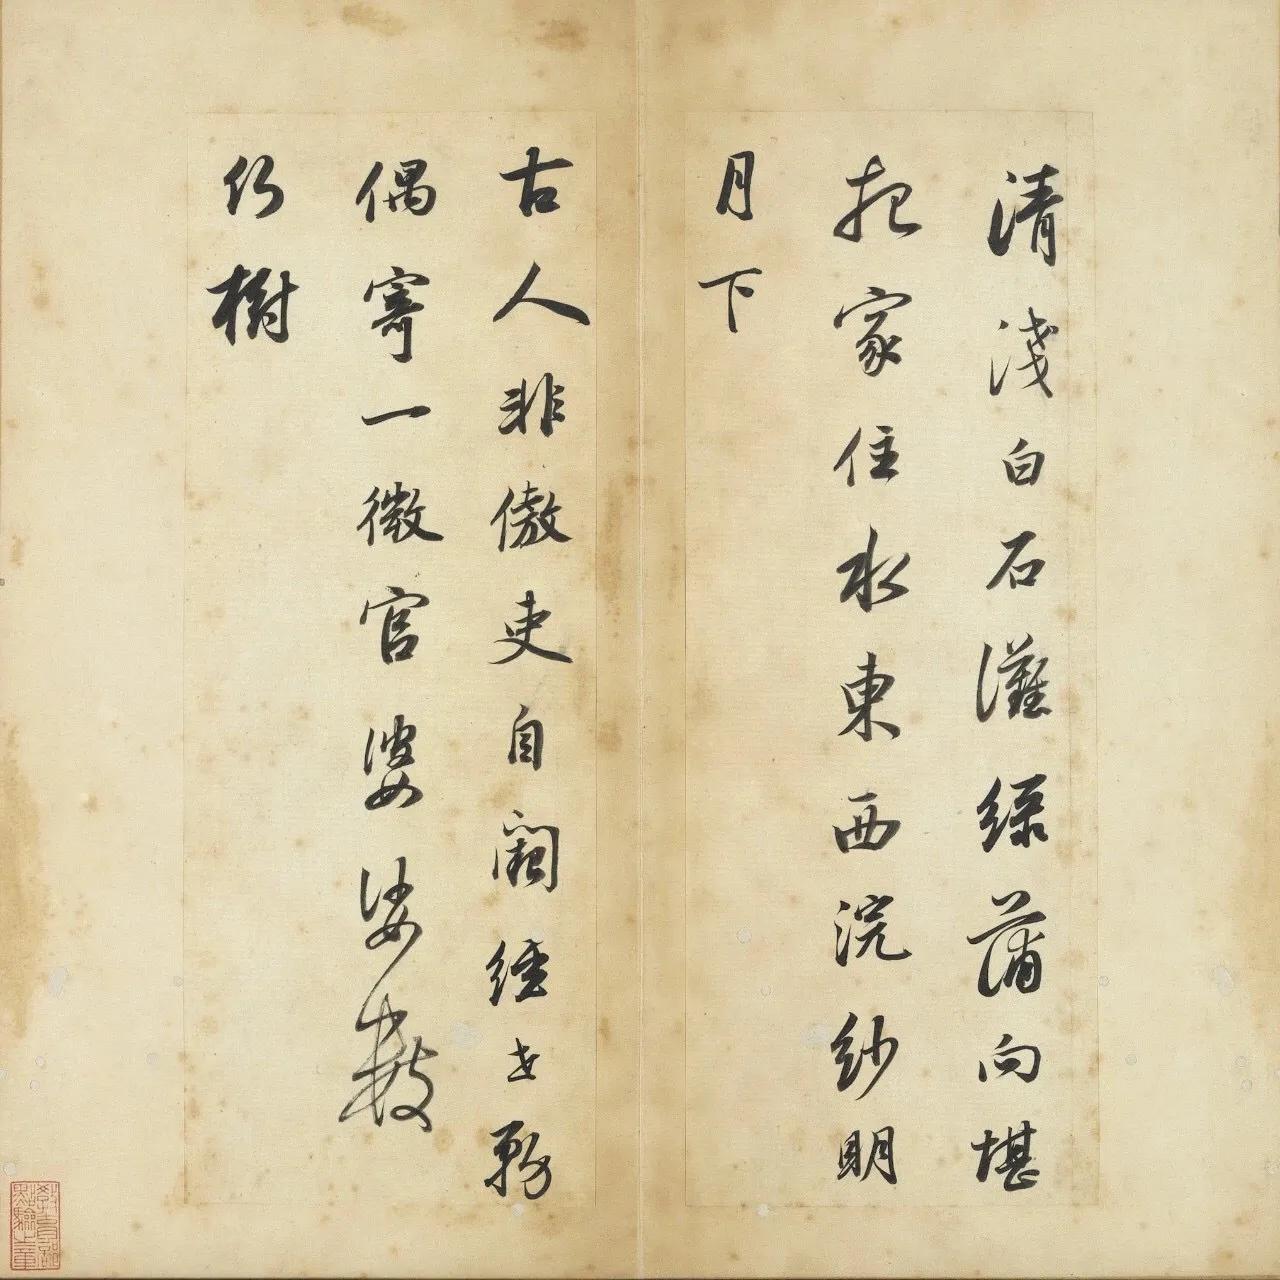 清淺白石灘綠蒲向堪
把家住水東西浣紗明
月下
古人非傲吏自闕經世務
偶寄一微官婆娑數
行樹
教育部點驗之章